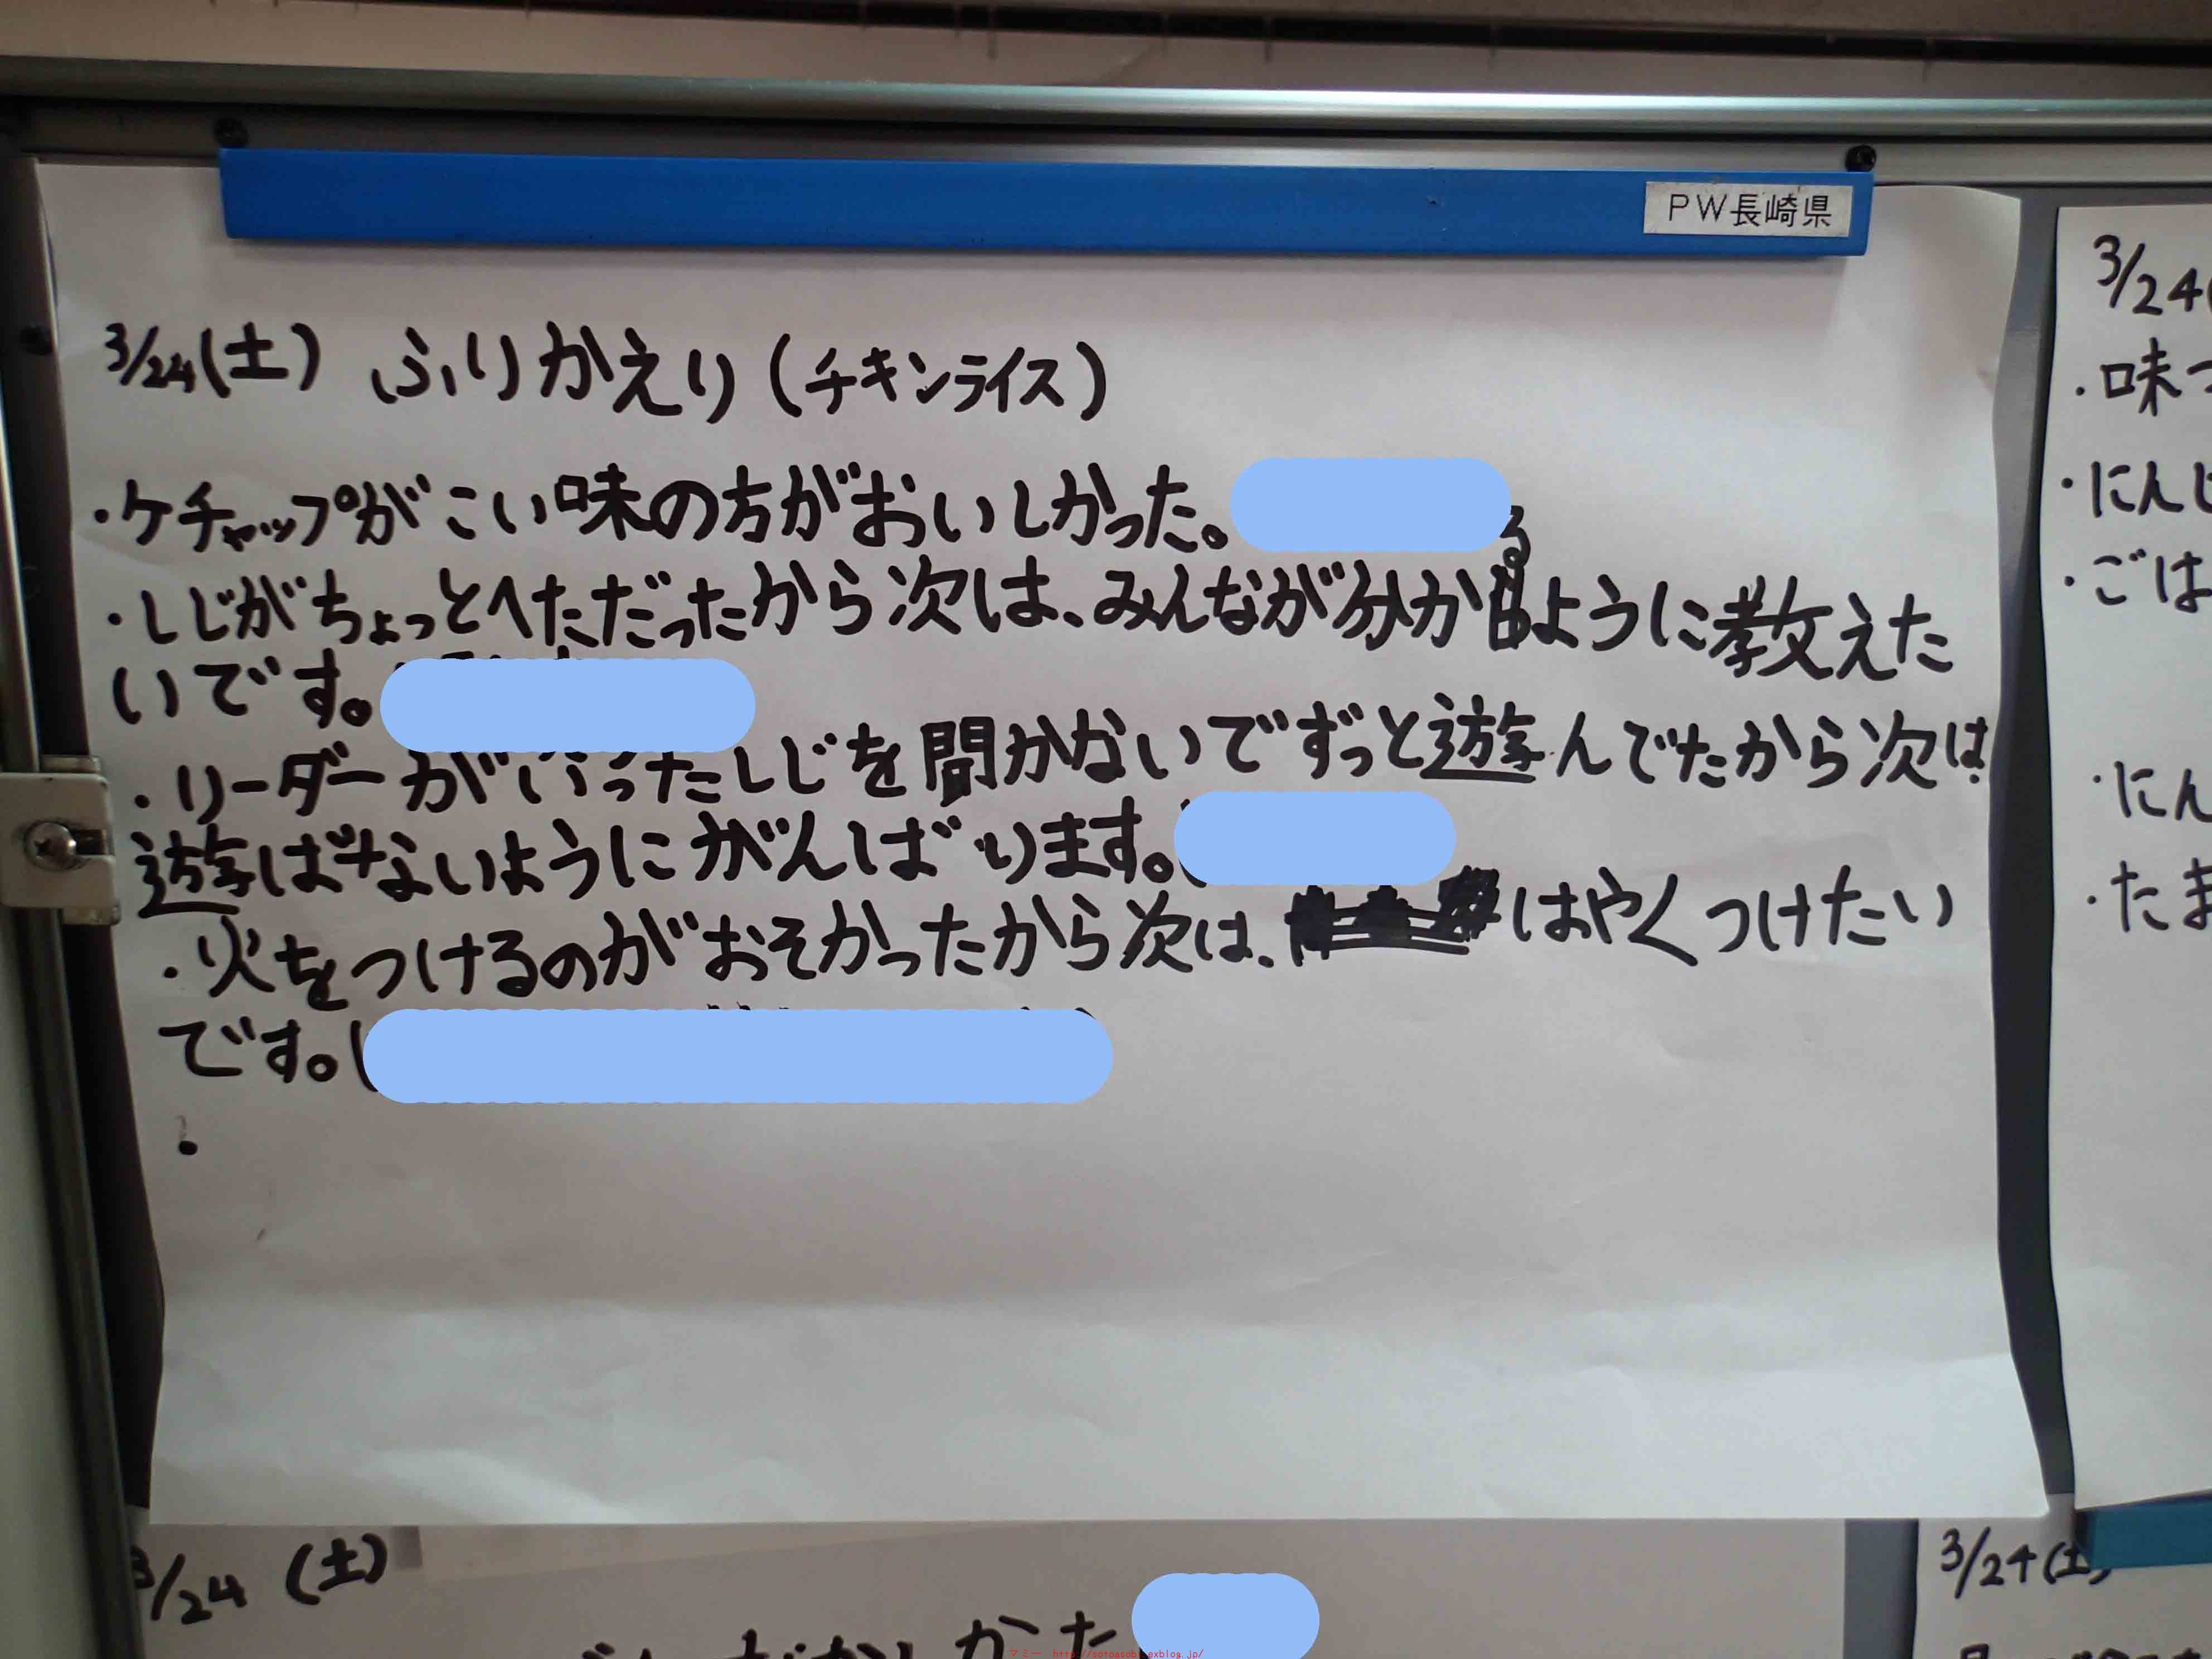 PW長崎県
3/24(土) ふりかえり(チキンライス)
・ケチャップがこい味の方がおいしかった。
・しじがちょっとへただったから次は、みんなが分かるように教えた
いです。
・リーダーが言ったしじを聞かないでずっと遊んでたから次は
遊ばないようにがんばります。
・火をつけるのがおそかったから次は、はやくつけたい
です。
・
3/24
・味つ
・にんじ
・ごは
・にん
・たま
3/24 (土)
かた
3/24(土)